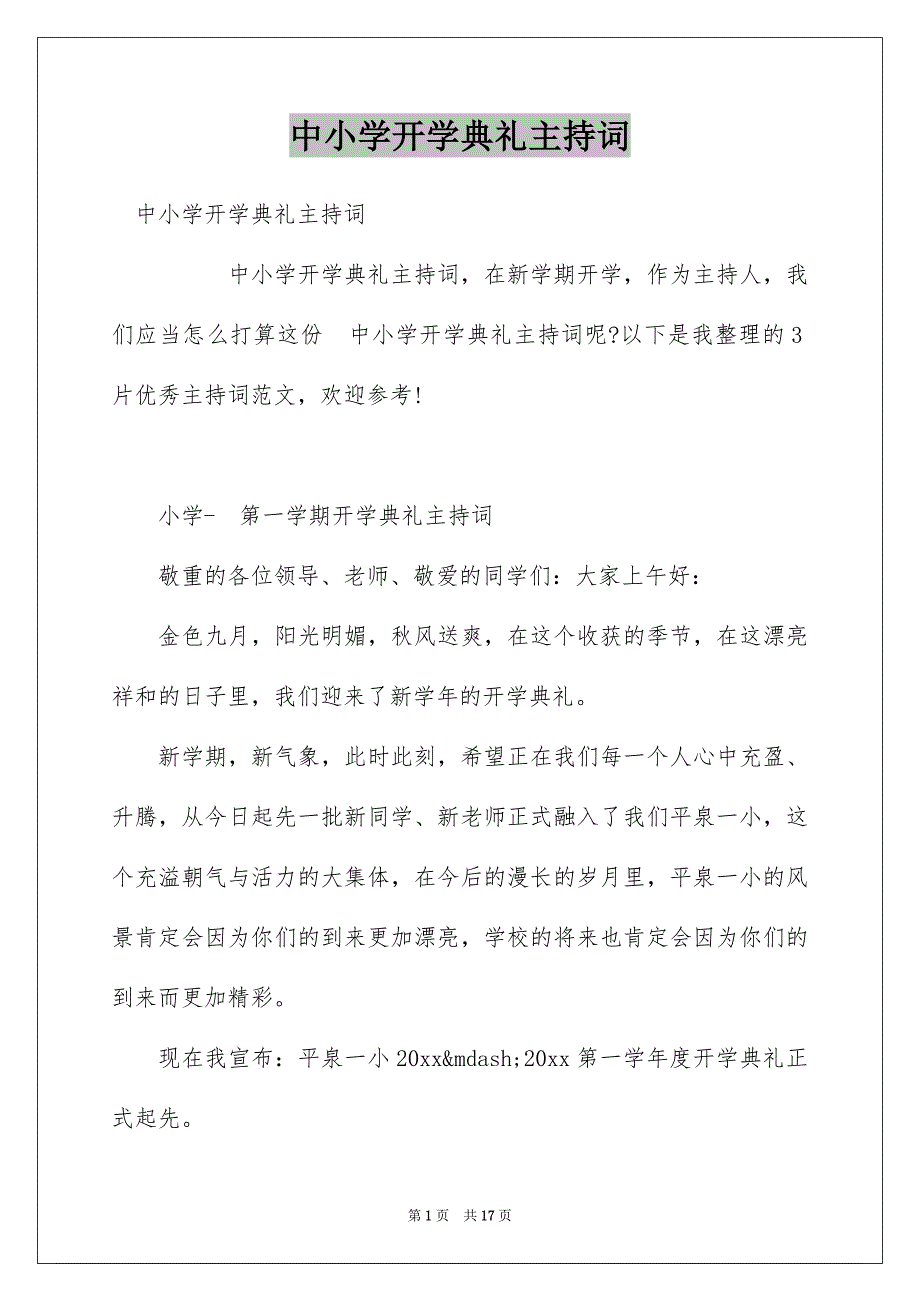 中小学开学典礼主持词
中小学开学典礼主持词
中小学开学典礼主持词，在新学期开学，作为主持人，我
们应当怎么打算这份　中小学开学典礼主持词呢?以下是我整理的3
片优秀主持词范文，欢迎参考!
小学-　第一学期开学典礼主持词
敬重的各位领导、老师、敬爱的同学们：大家上午好：
金色九月，阳光明媚，秋风送爽，在这个收获的季节，在这漂亮
祥和的日子里，我们迎来了新学年的开学典礼。
新学期，新气象，此时此刻，希望正在我们每一个人心中充盈、
升腾，从今日起先一批新同学、新老师正式融入了我们平泉一小，这
个充溢朝气与活力的大集体，在今后的漫长的岁月里，平泉一小的风
景肯定会因为你们的到来更加漂亮，学校的将来也肯定会因为你们的
到来而更加精彩。
现在我宣布：平泉一小20xx&mdash;20xx第一学年度开学典礼正
式起先。
第1页　共17页